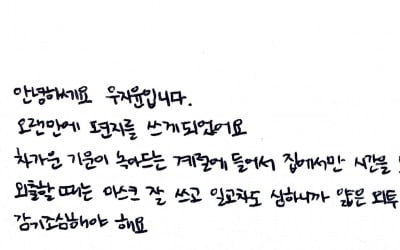 안녕하세요 우지윤입니다.
오랜만에 손편지를 쓰게되었어요
차가운 기운이 녹아드는 계절에 들어서 집에서만 시간을
외출할 때는 마스크 잘 쓰고 일교차도 심하니까 얇은 외투
감기조심해야 해요